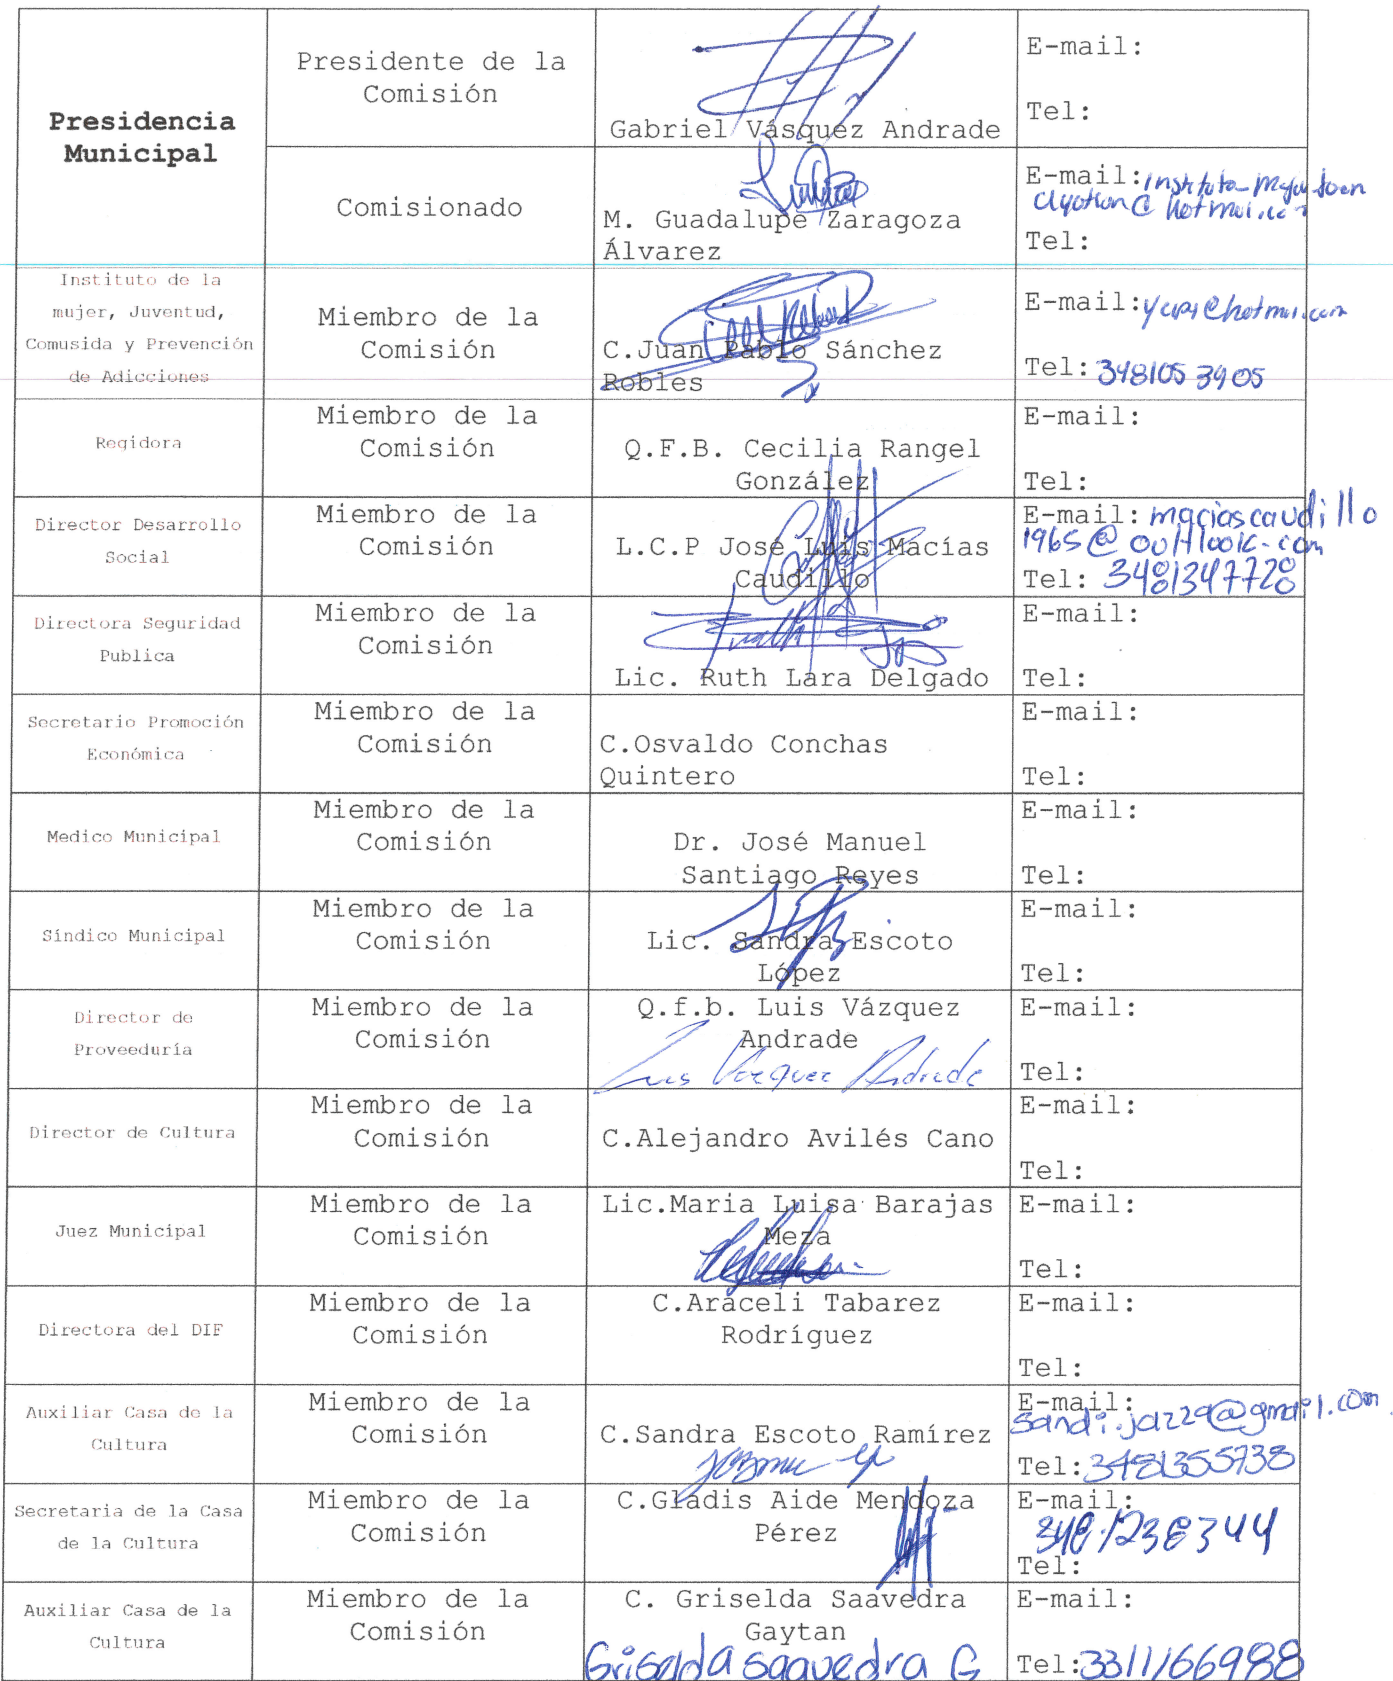 Presidencia
Municipal
Presidente de la
Comisión
Gabriel Vásquez Andrade
E-mail:
Tel:
Comisionado
M. Guadalupe Zaragoza
Álvarez
E-mail:
Tel:
Instituto de la
mujer, Juventud,
Comusida y Prevención
de Adicciones
Miembro de la
Comisión
C.Juan Pablo Sánchez
Robles
E-mail:
Tel: 348105 3905
Regidora
Miembro de la
Comisión
Q.F.B. Cecilia Rangel
González
E-mail:
Tel:
Director Desarrollo
Social
Miembro de la
Comisión
L.C.P José Luis Macías
Caudillo
E-mail: maciascaudillo
1965@outlook.com
Tel: 3481347728
Directora Seguridad
Publica
Miembro de la
Comisión
Lic. Ruth Lara Delgado
E-mail:
Tel:
Secretario Promoción
Económica
Miembro de la
Comisión
C.Osvaldo Conchas
Quintero
E-mail:
Tel:
Medico Municipal
Miembro de la
Comisión
Dr. José Manuel
Santiago Reyes
E-mail:
Tel:
Síndico Municipal
Miembro de la
Comisión
Lic. Sandra Escoto
López
E-mail:
Tel:
Director de
Proveeduría
Miembro de la
Comisión
Q.f.b. Luis Vázquez
Andrade
Luis Vazquez Andrade
E-mail:
Tel:
Director de Cultura
Miembro de la
Comisión
C.Alejandro Avilés Cano
E-mail:
Tel:
Juez Municipal
Miembro de la
Comisión
Lic.Maria Luisa Barajas
Meza
E-mail:
Tel:
Directora del DIF
Miembro de la
Comisión
C.Araceli Tabarez
Rodríguez
E-mail:
Tel:
Auxiliar Casa de la
Cultura
Miembro de la
Comisión
C.Sandra Escoto Ramírez
E-mail:
Tel: 3481355738
Secretaria de la Casa
de la Cultura
Miembro de la
Comisión
C.Gladis Aide Mendoza
Pérez
E-mail:
348 1238344
Tel:
Auxiliar Casa de la
Cultura
Miembro de la
Comisión
C. Griselda Saavedra
Gaytan
Griselda Saavedra G
E-mail:
Tel: 3311166988